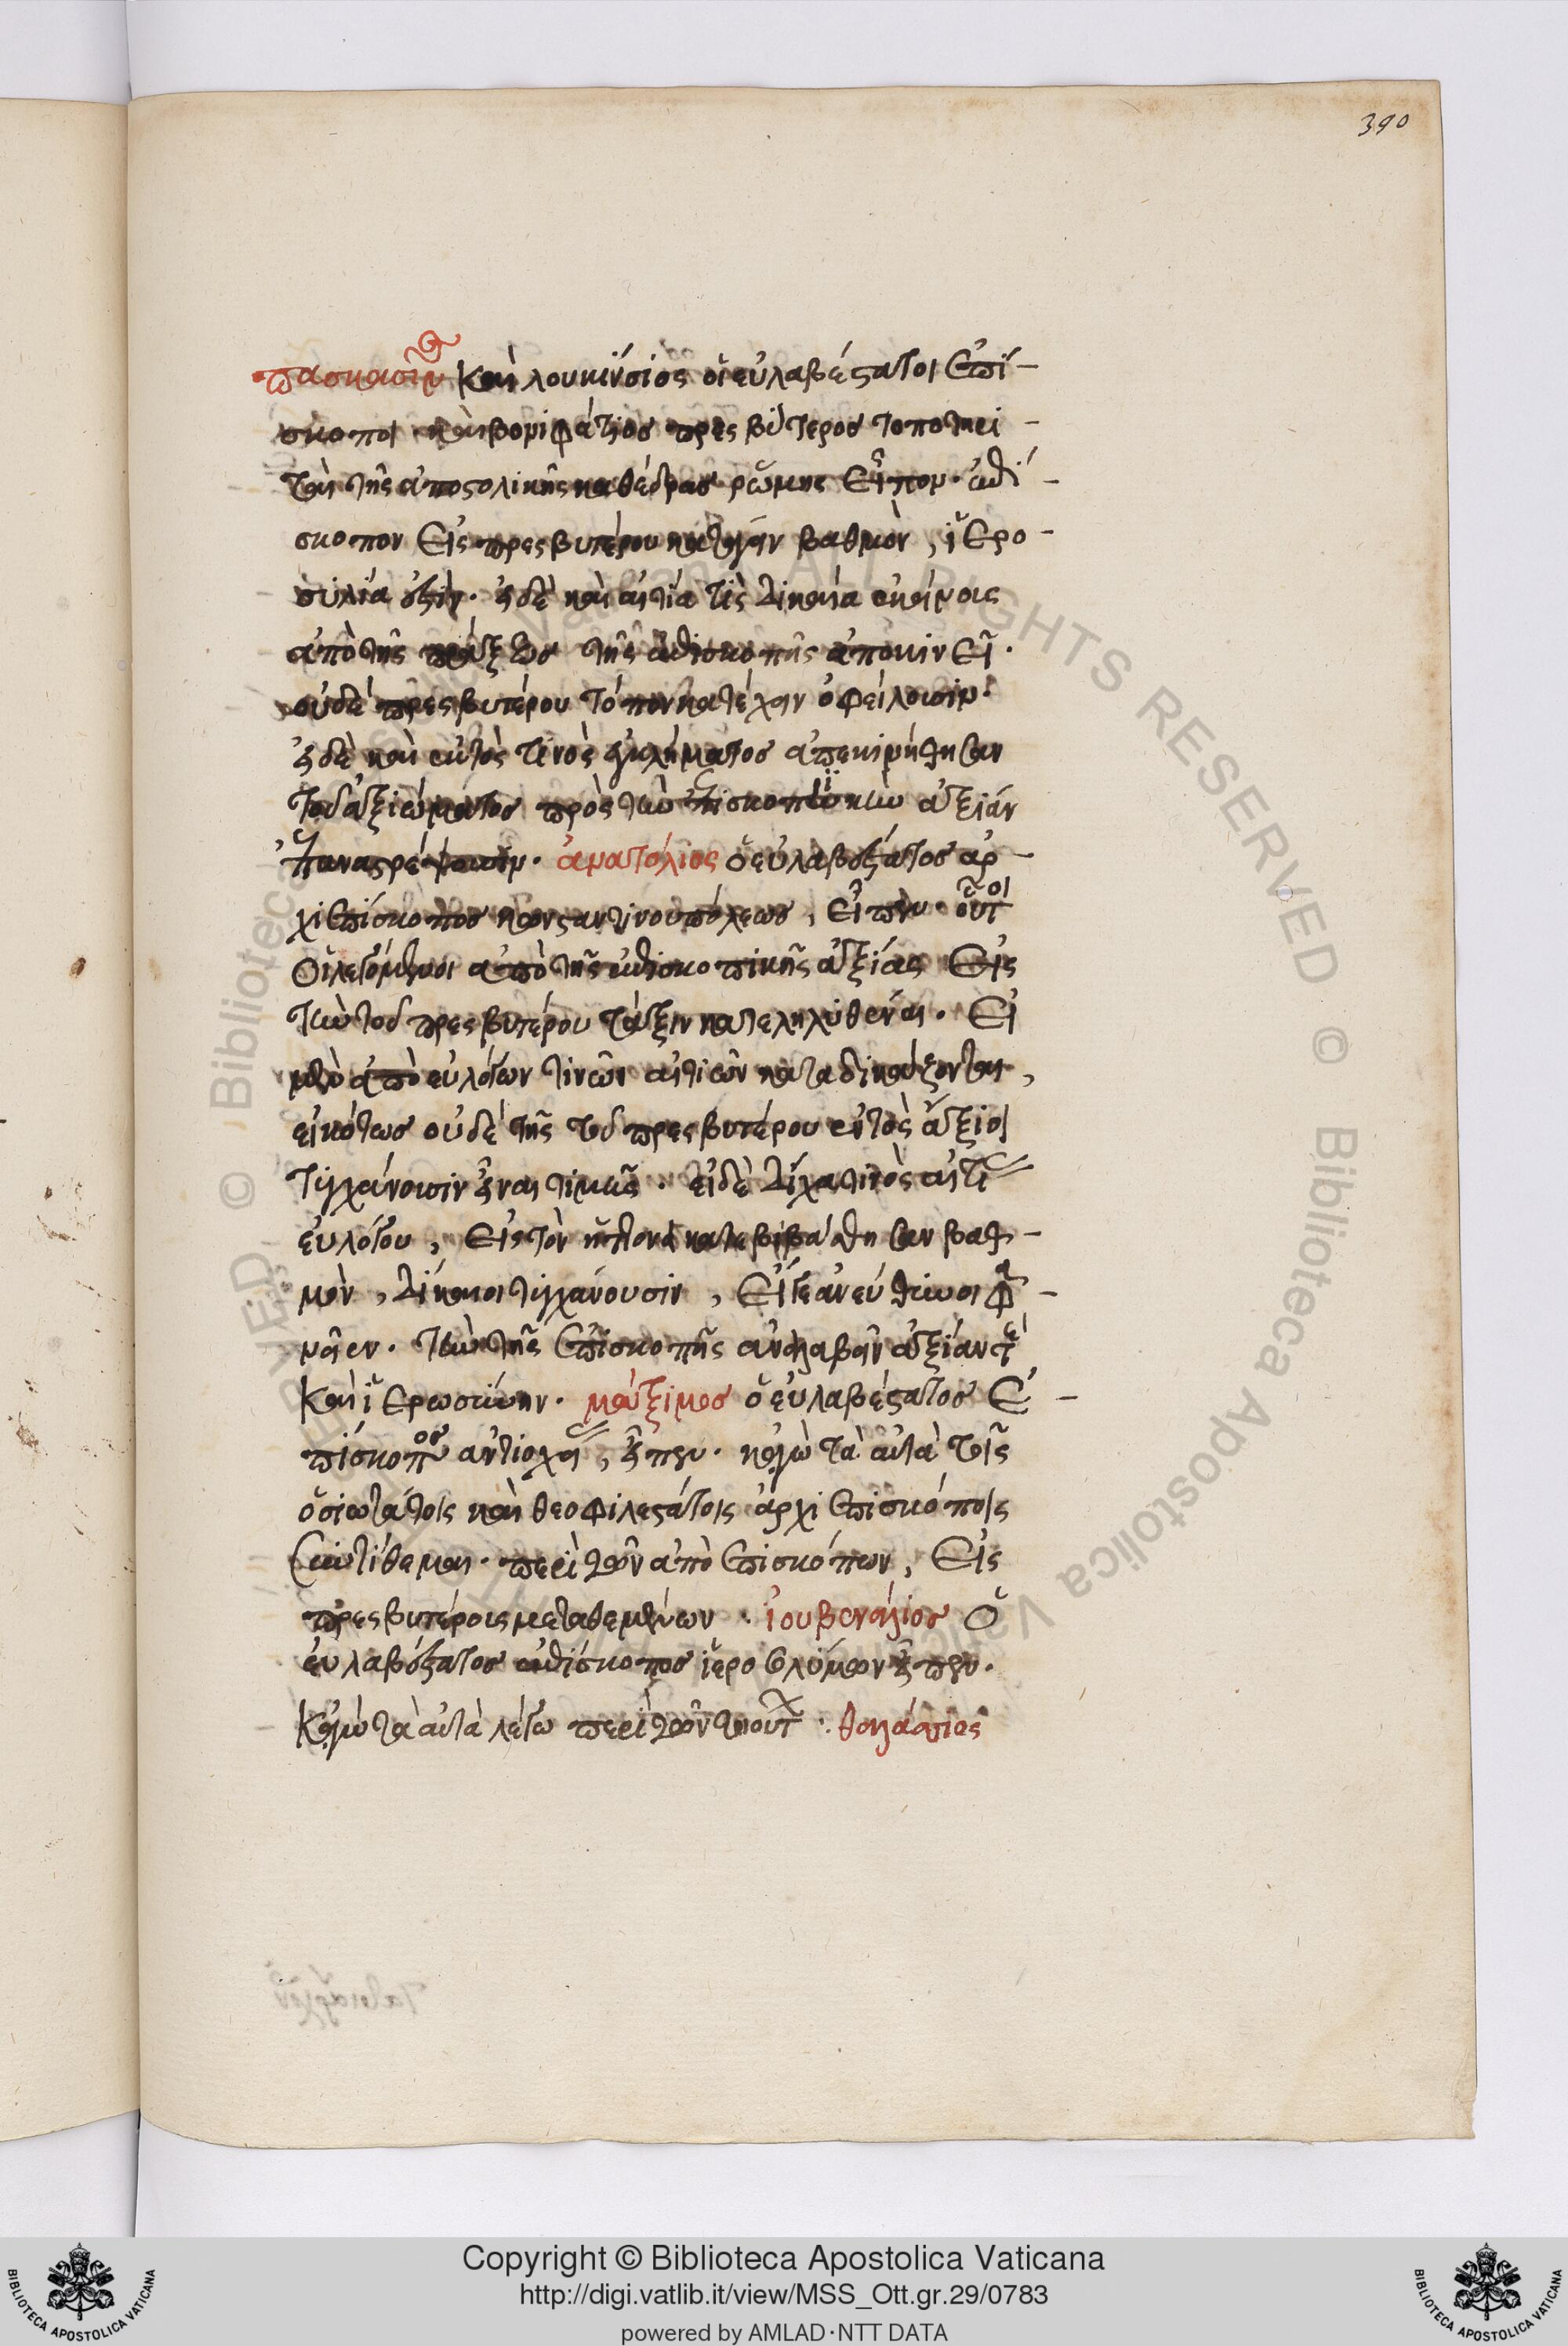 390
πασκασῖν(ος) καὶ λουκίνσιος οἱ εὐλαβέστατοι ἐπί-
σκοποι καὶ βονιφάτιος πρεσβύτερος τοποτηρι-
ταὶ τῆς ἀποστολικῆς καθέδρας ρώμης εἶπον· ἐπί-
σκοπον εἰς πρεσβυτέρου κατάγειν βαθμὸν, ἱερο-
συλία ἐστίν· εἰ δὲ καὶ αἰτία τίς δικαία ἐκείνοις
ἀπὸ τῆς πράξεως τῆς ἐπισκοπῆς ἀποκινεῖ·
οὐδὲ πρεσβυτέρου τόπον κατέχειν ὀφείλουσιν·
εἰ δὲ καὶ ἐκτός τινὸς ἐγκλήματος ἀπεκινήθησαν
τοῦ ἀξιώματος πρὸς τὴν ἐπισκοπικὴν ἀξίαν
ἐπαναστρέψουσιν· ἀνατόλιος ὁ εὐλαβέστατος ἀρ-
χιεπίσκοπος κωνσταντινουπόλεως, εἶπεν· οὗτοι
οἱ λεγόμενοι ἀπὸ τῆς ἐπισκοπικῆς ἀξίας εἰς
τὴν τοῦ πρεσβυτέρου τάξιν κατεληλυθέναι· εἰ
μὲν ἀπὸ εὐλόγων τινῶν αἰτιῶν καταδικάζονται,
εἰκότως οὐδὲ τῆς τοῦ πρεσβυτέρου ἐντὸς ἄξιοι
τυγχάνουσιν εἶναι τιμῆς· εἰ δὲ δίχα τινὸς αἰτί(ας)
εὐλόγου, εἰς τὸν ἥττονα κατεβιβάσθησαν βαθ-
μὸν, δίκαιοι τυγχάνουσιν, εἴγε ἀνεύθυνοι φα-
νεῖεν· τὴν τῆς ἐπισκοπῆς ἀναλαβεῖν ἀξίαν τὲ
καὶ ἱερωσύνην· μάξιμος ὁ εὐλαβέστατος ἐ-
πίσκοπος ἀντιοχεί(ας), εἶπεν· κἀγὼ τὰ αὐτὰ τοῖς
ὁσιωτάτοις καὶ θεοφιλεστάτοις ἀρχιεπισκόποις
συντίθεμαι· περὶ τῶν ἀπὸ ἐπισκόπων, εἰς
πρεσβυτέροις μεταθεμένων· ἰουβενάλιος ὁ
εὐλαβέστατος ἐπίσκοπος ἱεροσολύμων εἶπεν·
κἀγὼ τὰ αὐτὰ λέγω περὶ τῶν τοιούτ(ων)· θαλάσιος
Copyright © Biblioteca Apostolica Vaticana
http://digi.vatlib.it/view/MSS_Ott.gr.29/0783
powered by AMLAD·NTT DATA
BIBLIOTECA APOSTOLICA VATICANA
BIBLIOTECA APOSTOLICA VATICANA